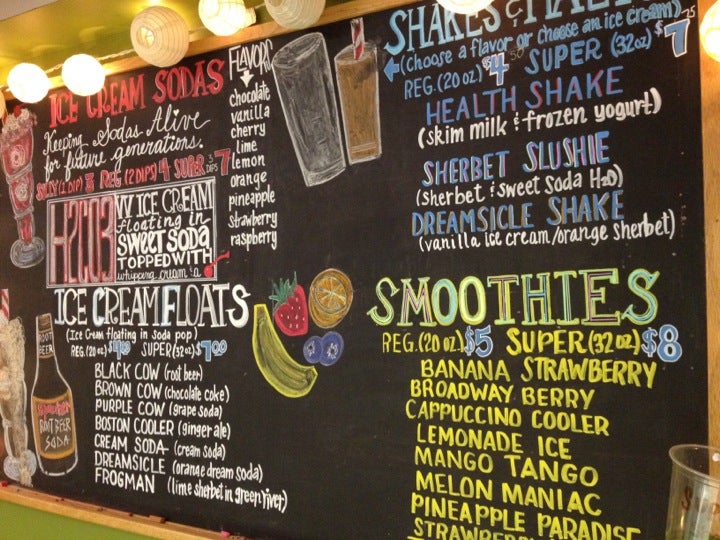 ICE CREAM SODAS
Keeping Sodas Alive
for future generations.
SILLY (1 DIP) 3 REG (2 DIPS) 4 SUPER 3 DIPS 7
H2CO3
VV ICE CREAM
floating in
SWEET SODA
TOPPED WITH
whipping cream & a
FLAVORS
chocolate
vanilla
cherry
lime
lemon
orange
pineapple
strawberry
raspberry
ICE CREAM FLOATS
(Ice Cream floating in soda pop)
REG (20 oz) SUPER (32 oz) $7.00
BLACK COW (root beer)
BROWN COW (chocolate coke)
PURPLE COW (grape soda)
BOSTON COOLER (ginger ale)
CREAM SODA (cream soda)
DREAMSICLE (orange dream soda)
FROGMAN (lime sherbet in green river)
ROOT
BEER
ROOT BEER
SODA
SHAKES &
(choose a flavor or choose an ice cream)
REG. (20 oz) $4.50 SUPER (32 oz) $7.75
HEALTH SHAKE
(skim milk & frozen yogurt)
SHERBET SLUSHIE
(sherbet & sweet soda H2O)
DREAMSICLE SHAKE
(vanilla ice cream/orange sherbet)
SMOOTHIES
REG. (20 oz.) $5 SUPER (32 oz) $8
BANANA STRAWBERRY
BROADWAY BERRY
CAPPUCCINO COOLER
LEMONADE ICE
MANGO TANGO
MELON MANIAC
PINEAPPLE PARADISE
STRAWBERRY